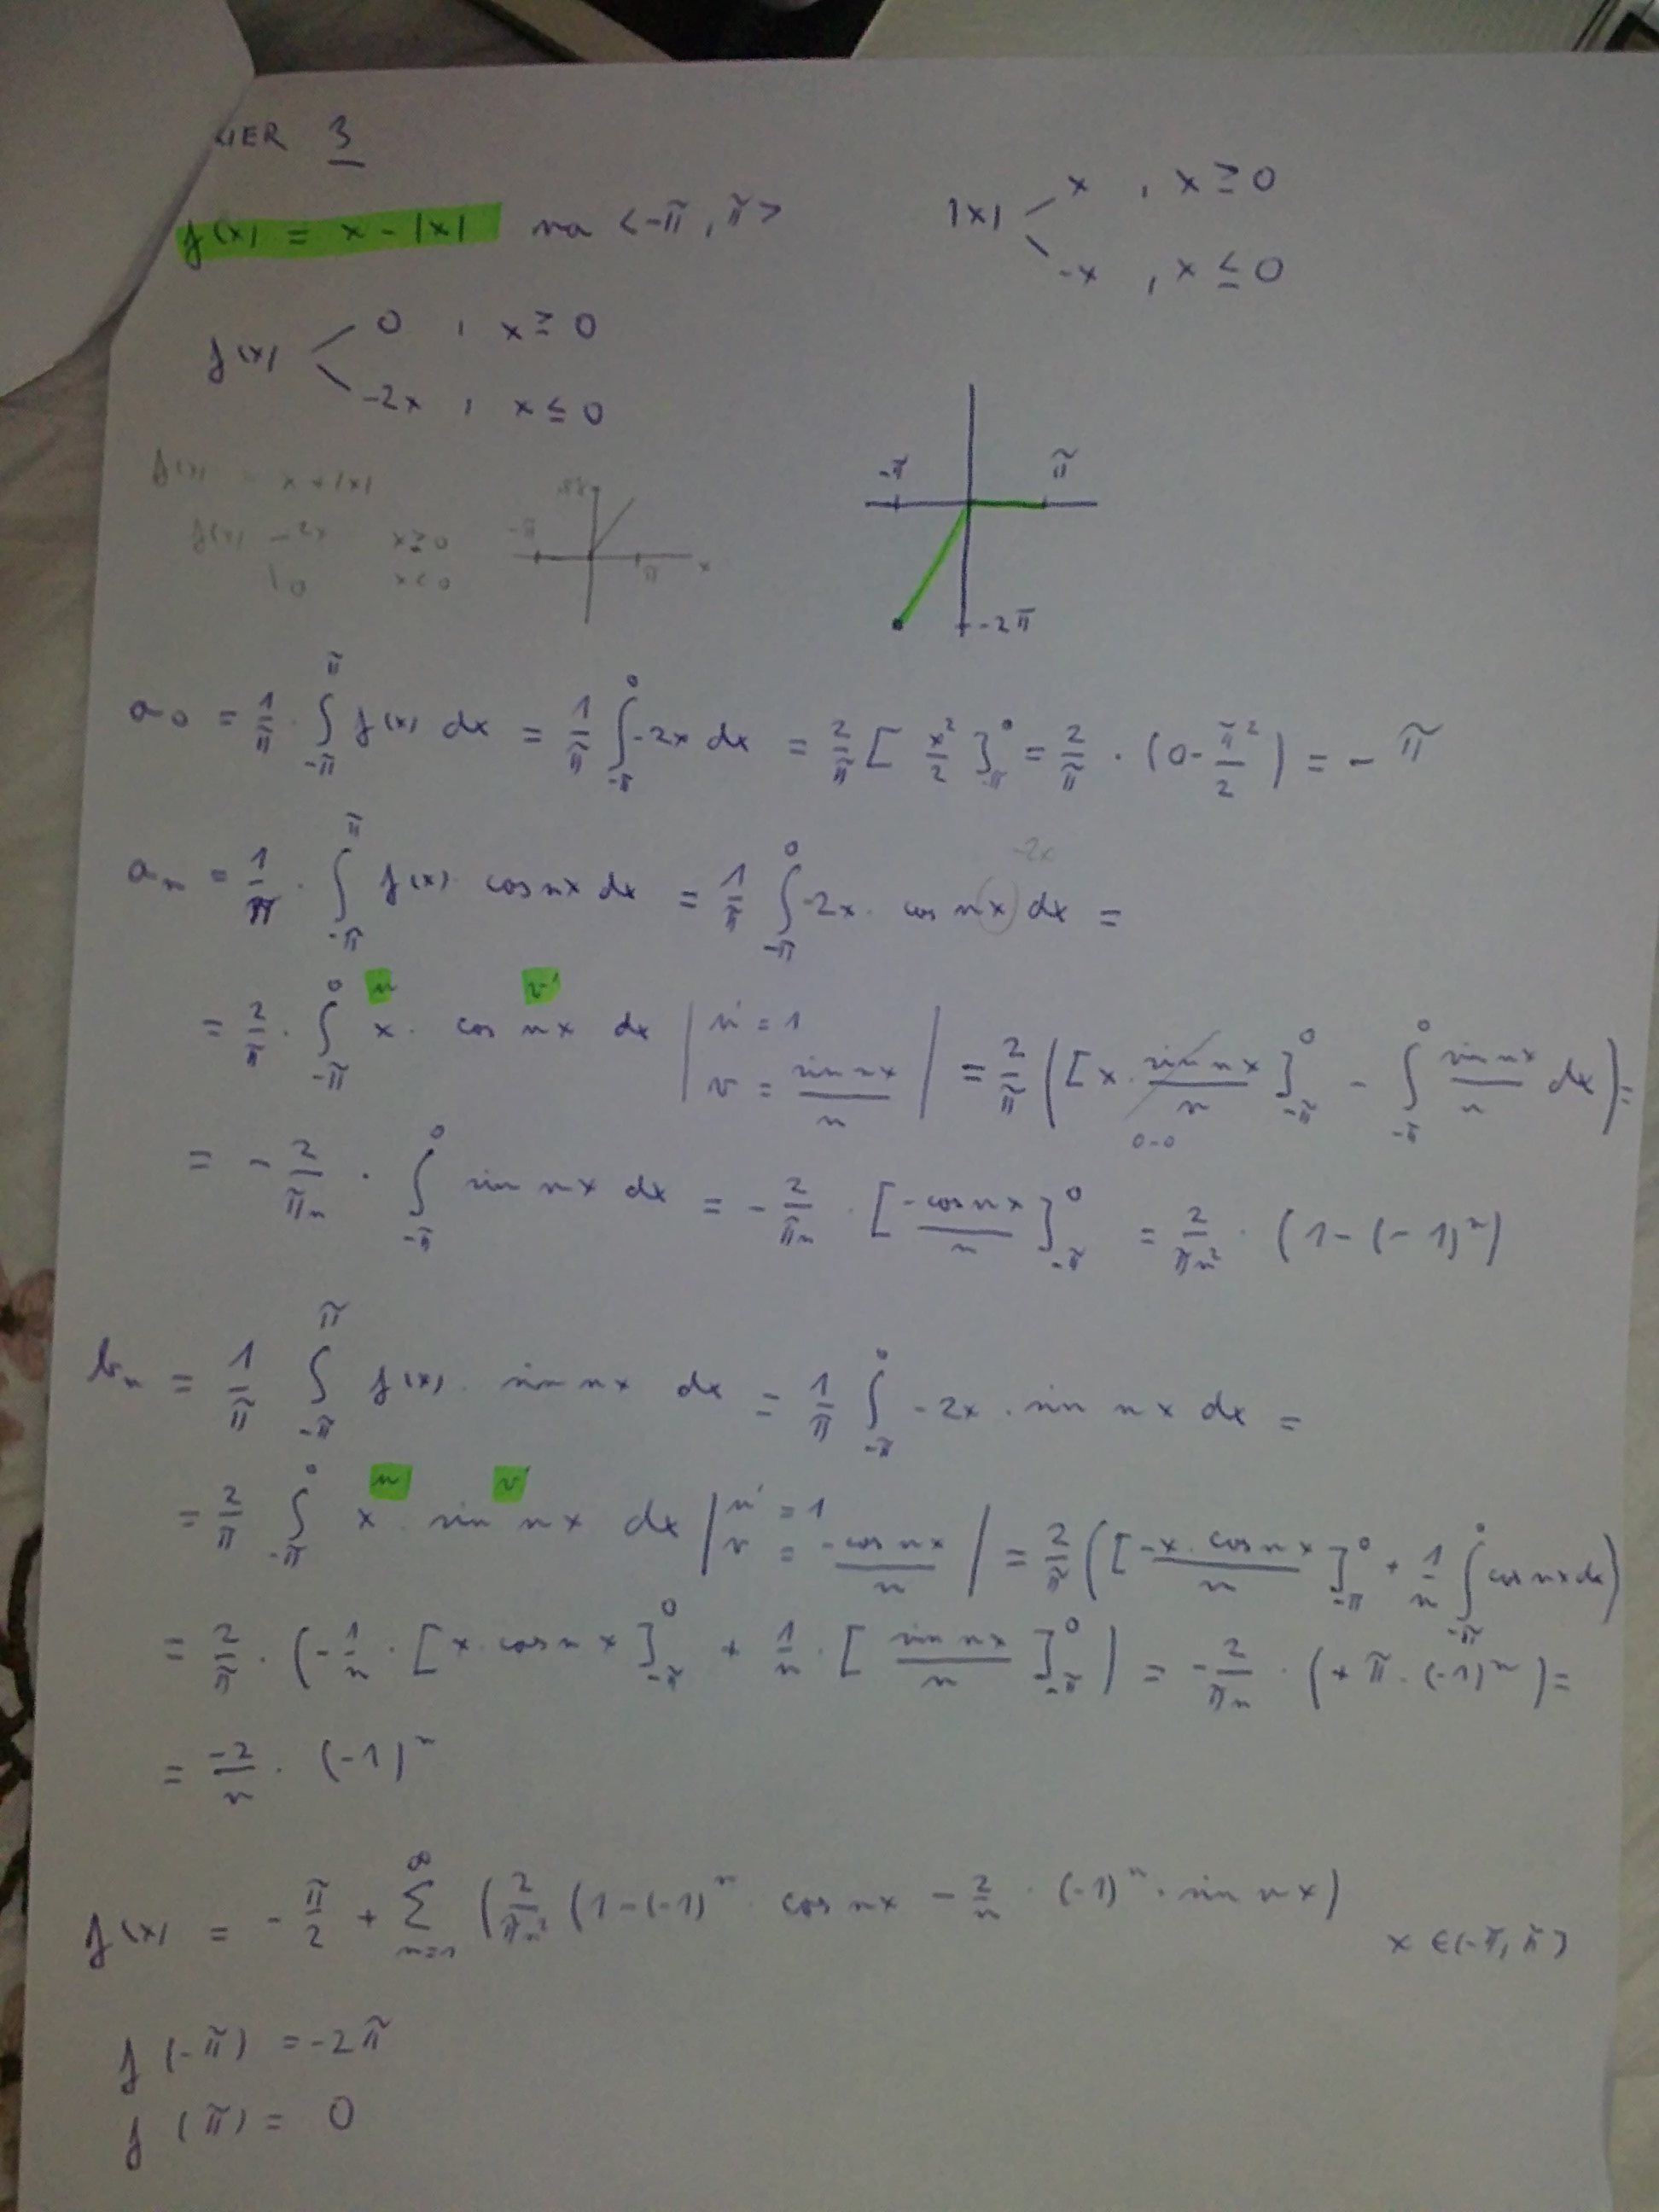 IER 3
f(x) = x - |x| na <-π, π>
|x| x , x ≥ 0
-x , x ≤ 0
f(x) 0 , x ≥ 0
-2x , x ≤ 0
f(x) = x + |x|
f(x) 2x x ≥ 0
0 x < 0
-π π x
-π π
-2π
a₀ = 1/π · ∫_{-π}^{π} f(x) dx = 1/π ∫_{-π}^{0} -2x dx = 2/π [x²/2]_{-π}^{0} = 2/π · (0 - π²/2) = -π
aₙ = 1/π · ∫_{-π}^{π} f(x) · cos nx dx = 1/π ∫_{-π}^{0} -2x · cos nx dx =
-2x
u v'
= 2/π · ∫_{-π}^{0} x · cos nx dx | u' = 1 v = sin nx/n | = 2/π ([x · sin nx/n]_{-π}^{0} - ∫_{-π}^{0} sin nx/n dx) =
0-0
= - 2/πn · ∫_{-π}^{0} sin nx dx = - 2/πn · [-cos nx/n]_{-π}^{0} = 2/πn² · (1 - (-1)ⁿ)
bₙ = 1/π ∫_{-π}^{π} f(x) · sin nx dx = 1/π ∫_{-π}^{0} -2x · sin nx dx =
u v'
= 2/π ∫_{-π}^{0} x · sin nx dx | u' = 1 v = -cos nx/n | = 2/π ([-x · cos nx/n]_{-π}^{0} + 1/n ∫_{-π}^{0} cos nx dx)
= 2/π · (-1/n · [x · cos nx]_{-π}^{0} + 1/n · [sin nx/n]_{-π}^{0}) = -2/πn · (+π · (-1)ⁿ) =
= -2/n · (-1)ⁿ
f(x) = -π/2 + ∑_{n=1}^{∞} (2/πn² (1-(-1)ⁿ · cos nx - 2/n · (-1)ⁿ · sin nx)
x ∈ (-π, π)
f(-π) = -2π
f(π) = 0